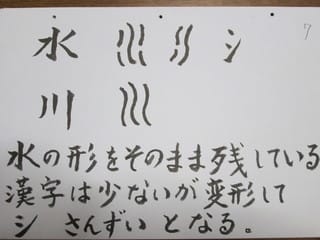 水 氵 7
川
水の形をそのまま残している
漢字は少ないが変形して
氵 さんずい となる。